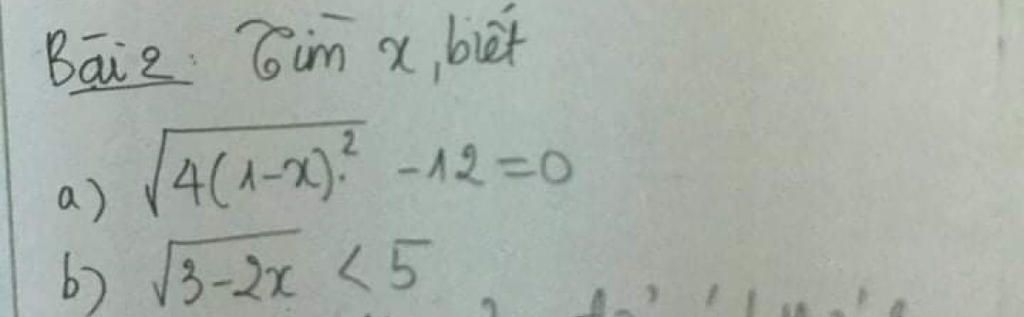 Bài 2: Tìm x, biết
a) √4(1-x)² - 12 = 0
b) √3-2x < 5